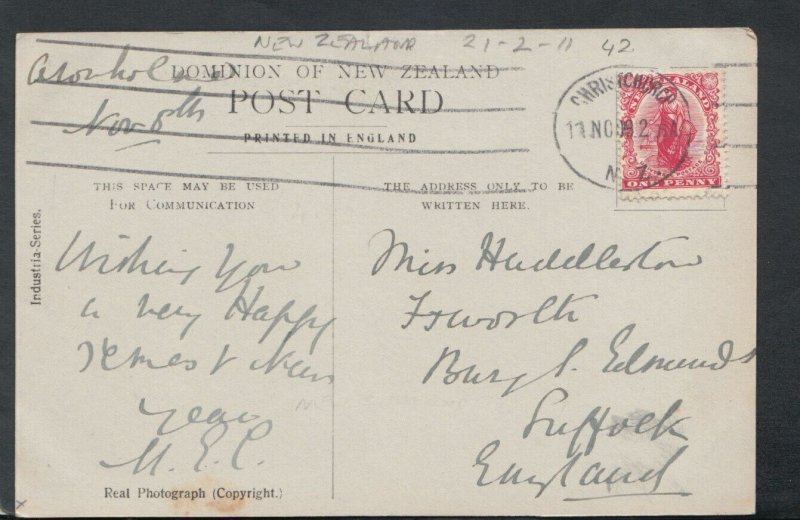 NEW ZEALAND 21-2-11 42
DOMINION OF NEW ZEALAND
POST CARD
Nov 8th
PRINTED IN ENGLAND
CHRISTCHURCH
11 NO 09 2
N.Z.
ZEALAND
ONE PENNY
THIS SPACE MAY BE USED
FOR COMMUNICATION
THE ADDRESS ONLY TO BE
WRITTEN HERE.
Industria-Series.
Wishing you
a very Happy
Xmas & New
Year
M.E.C.
Miss Huddleston
Ixworth
Bury S. Edmunds
Suffolk
England
Real Photograph (Copyright.)